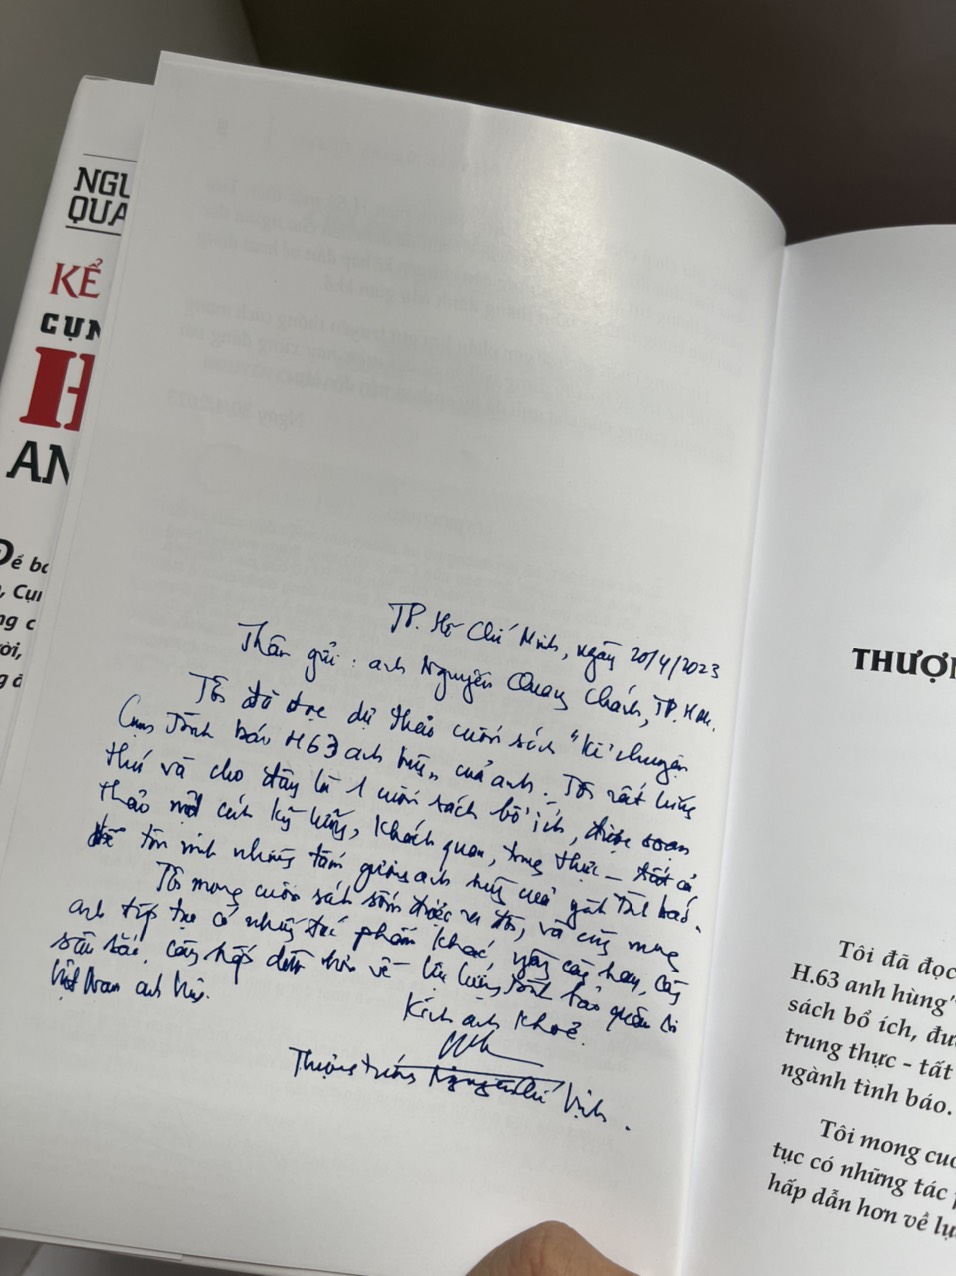 NGU
QUA
KỂ
CỤM
H
AN
Để bo
, Cụm
ng c
ời,
g đ
TP. Hồ Chí Minh, ngày 20/4/2023
Thân gửi: anh Nguyễn Quang Chánh, TP. HCM.
Tôi đã đọc dự thảo cuốn sách "kể chuyện
Cụm Tình báo H63 anh hùng" của anh. Tôi rất hứng
thú và cho đây là 1 cuốn sách bổ ích, được soạn
thảo một cách kỹ lưỡng, khách quan, trung thực - tất cả
để tôn vinh những tấm gương anh hùng của ngành tình báo.
Tôi mong cuốn sách sớm được ra đời, và cũng mong
anh tiếp tục có những tác phẩm khác, ngày càng hay, càng
sâu sắc, càng hấp dẫn hơn về lực lượng tình báo quân sự
Việt Nam anh hùng.
Kính anh khoẻ.
Thượng tướng Nguyễn Chí Vịnh.
THƯỢN
Tôi đã đọc
H.63 anh hùng"
sách bổ ích, đư
trung thực - tất
ngành tình báo.
Tôi mong cuố
tục có những tác p
hấp dẫn hơn về lự